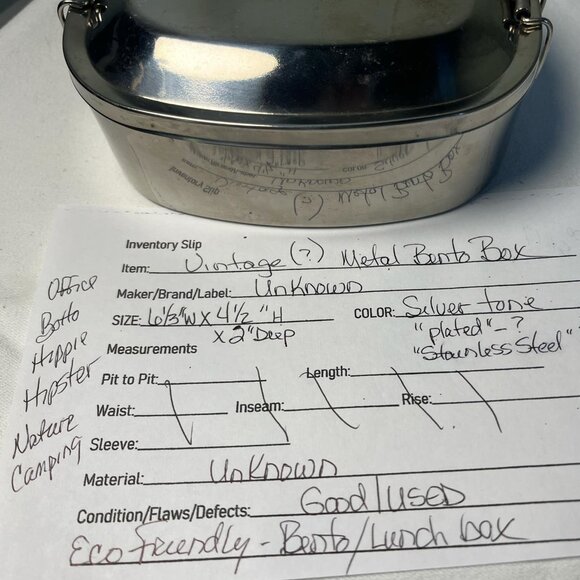 Inventory Slip
Item: Vintage (?) Metal Bento Box
Maker/Brand/Label: Unknown
SIZE: 6 1/3"W X 4 1/2 "H COLOR: Silver tone
X 2" Deep "plated" - ?
"Stainless Steel"
Measurements
Pit to Pit: Length:
Waist: Inseam: Rise:
Sleeve:
Material: Unknown
Condition/Flaws/Defects: Good/USED
Eco Friendly - Bento/Lunch box
Office
Boho
Hippie
Hipster
Nature
Camping